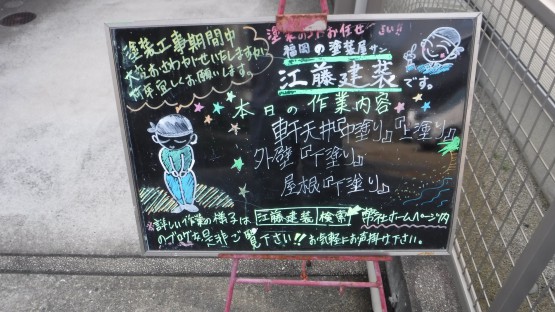 塗装工事期間中
大変おさわがせいたしますが
何卒宜しくお願いします。
塗装の事ならお任せ
福岡の塗装屋サン
江藤建装です。
本日の作業内容
軒天井『中塗り』『上塗り』
外壁『下塗り』
屋根『下塗り』
※詳しい作業の様子は 江藤建装 検索 弊社ホームページ内
のブログを是非ご覧下さい!! お気軽にお声掛け下さい。